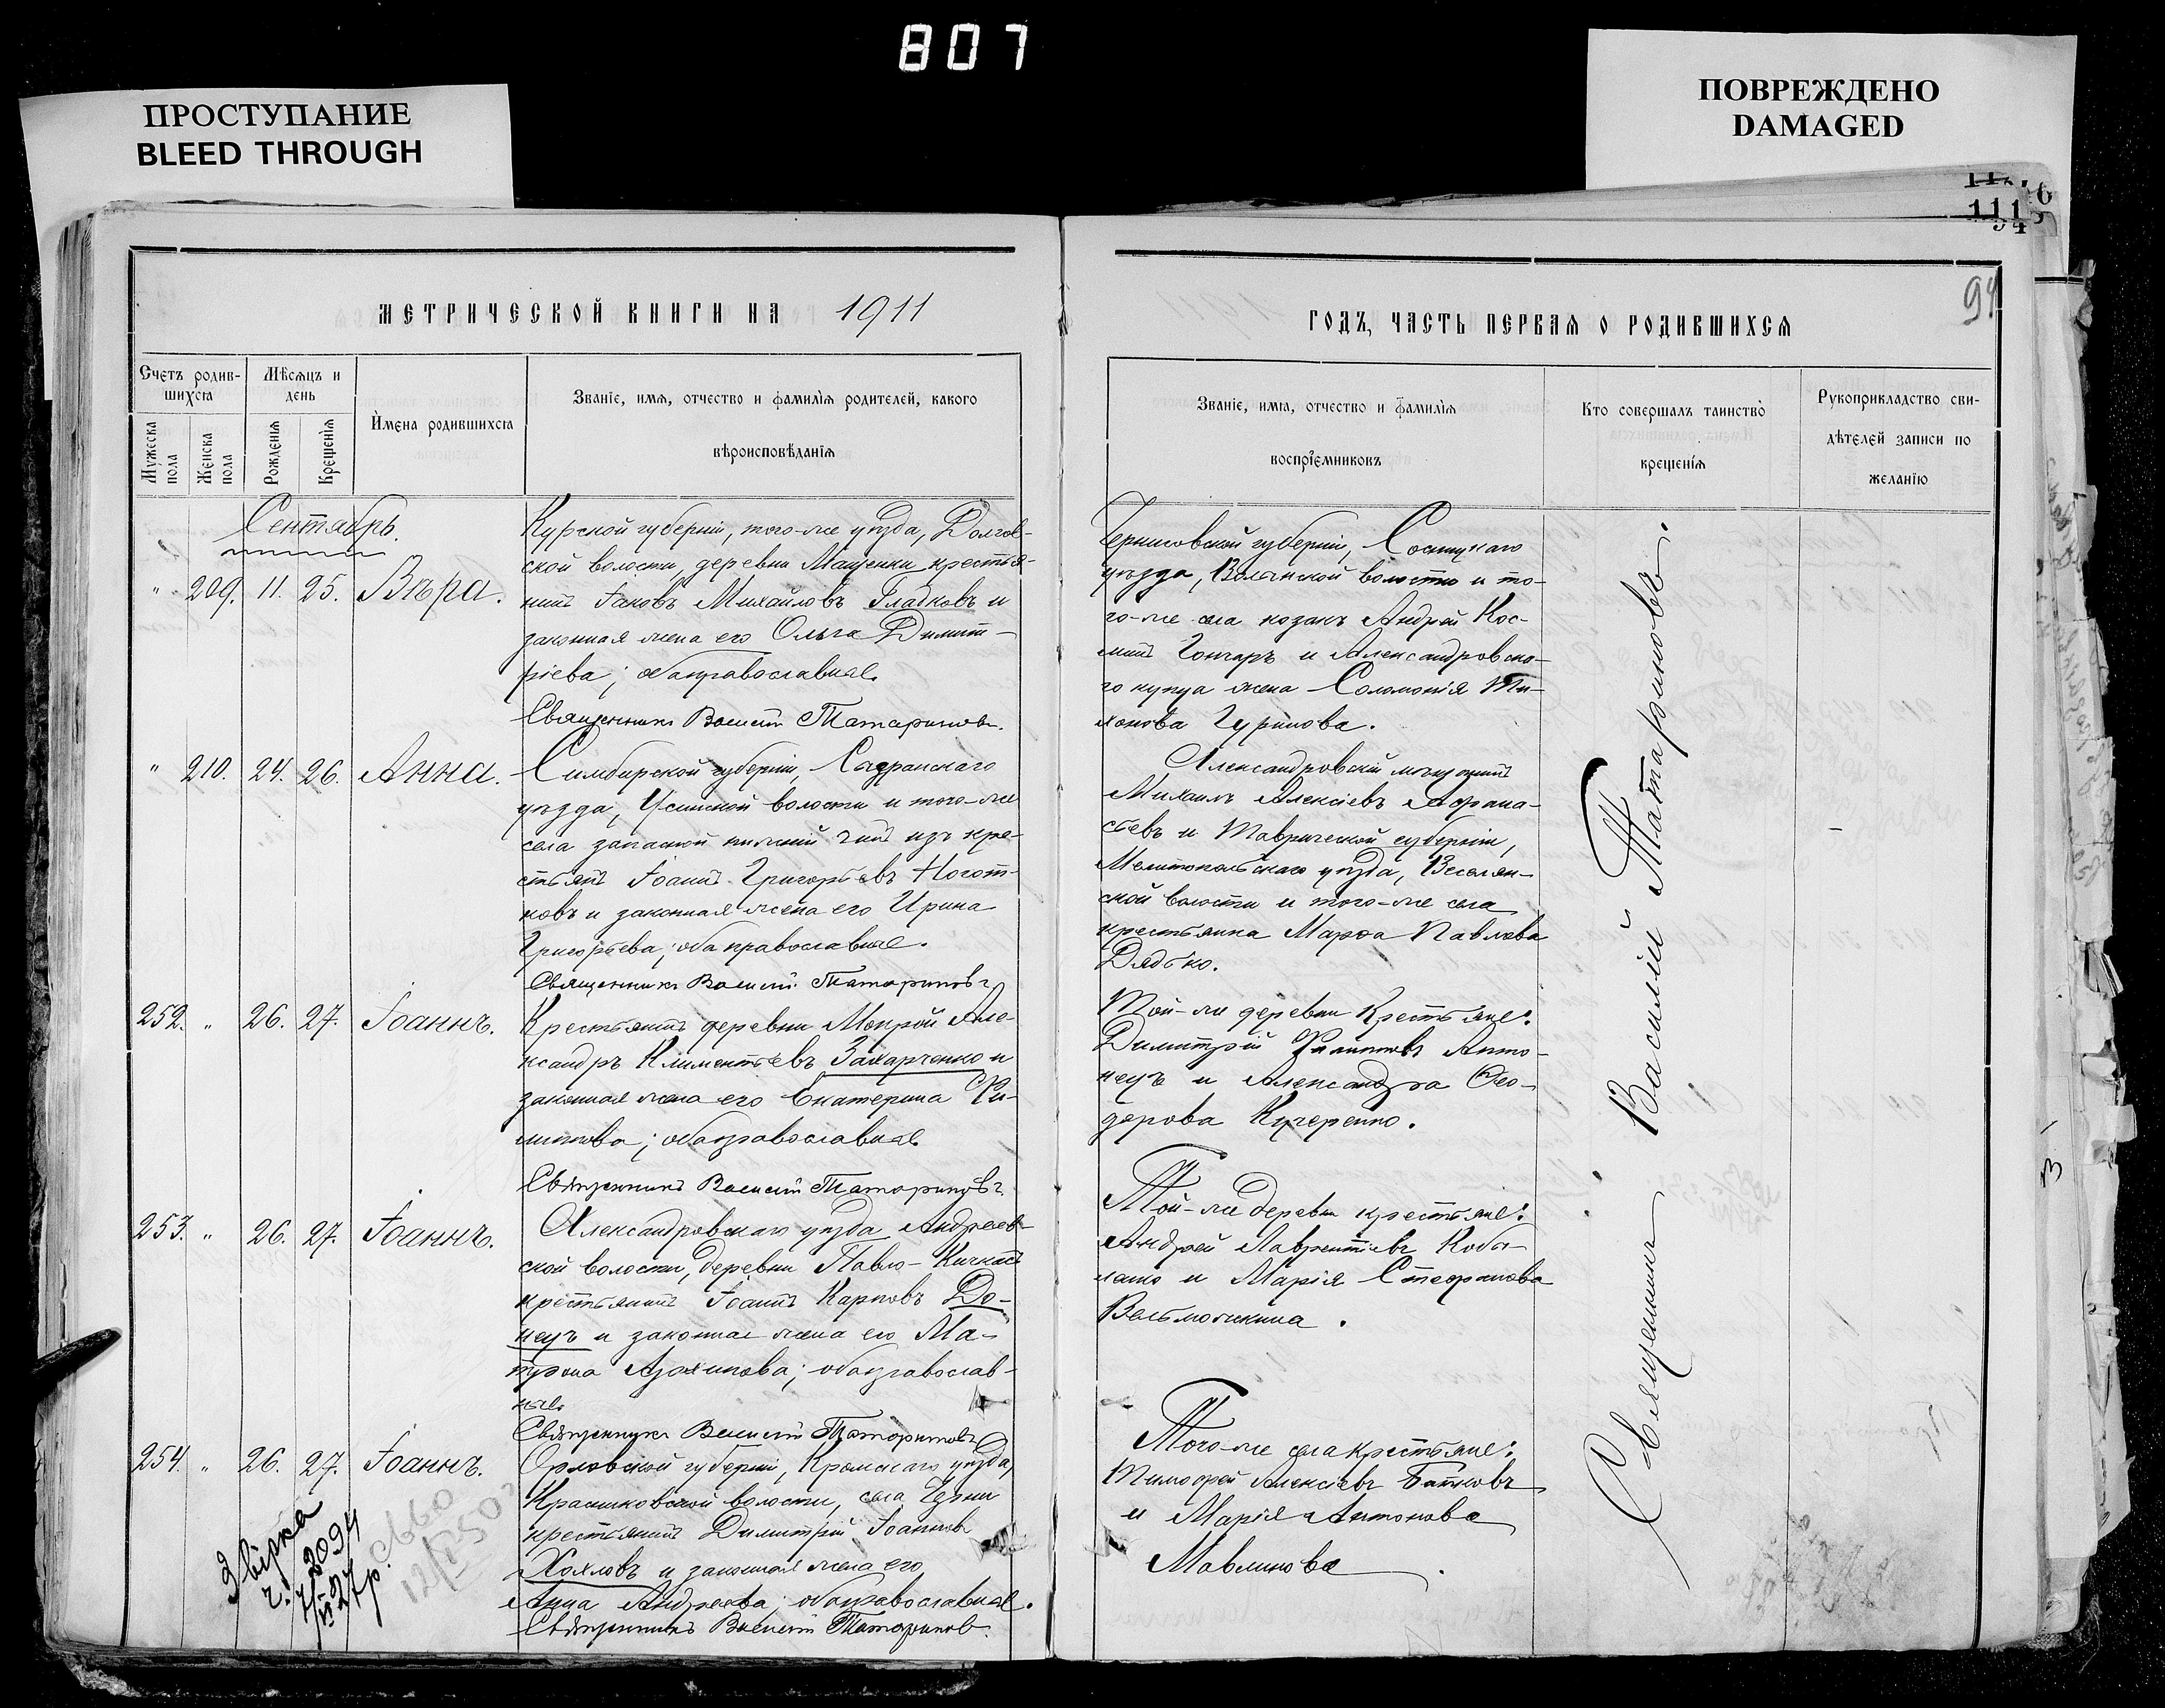 807
ПРОСТУПАНИЕ
BLEED THROUGH
ПОВРЕЖДЕНО
DAMAGED
94
МЕТРИЧЕСКОЙ КНИГИ НА 1911
ГОДЪ, ЧАСТЬ ПЕРВАЯ О РОДИВШИХСЯ
Счетъ родив-
шихся
Мѣсяцъ и
день
Мужеска
пола
Женска
пола
Рожденія
Крещенія
Имена родившихся
Званіе, имя, отчество и фамилія родителей, какого
вѣроисповѣданія
Званіе, имя, отчество и фамилія
воспріемниковъ
Кто совершалъ таинство
крещенія
Рукоприкладство сви-
дѣтелей записи по
желанію
Сентябрь.
" 209. 11. 25. Вѣра.
Курской губерніи, того-же уѣзда, Долгов-
ской волости, деревни крестья-
нинъ Іаковъ Михайловъ Гладковъ и
законная жена его Ольга Димит-
ріева; оба православные.
Священникъ Василій Татариновъ.
Черниговской губерніи, Сосницкаго
уѣзда, Волынской волости и то-
го-же села козакъ Андрей Кос-
минъ Гончаръ и Александровска-
го купца жена Соломонія Ти-
хонова Гуринова.
" 210. 24. 26. Анна.
Симбирской губерніи, Сызранскаго
уѣзда, Усинской волости и того-же
села запасной нижній чинъ изъ кре-
стьянъ Іоаннъ Григорьевъ Ногот-
ковъ и законная жена его Ирина
Григорьева; оба православные.
Священникъ Василій Татариновъ
Александровскій мѣщанинъ
Михаилъ Алексіевъ Афана-
сьевъ и Таврической губерніи,
Мелитопольскаго уѣзда, Веселян-
ской волости и того-же села
крестьянка Марфа Павлова
Дядько.
252. " 26. 27. Іоаннъ.
Крестьянинъ деревни Мокрой Але-
ксандръ Климентьевъ Захарченко и
законная жена его Екатерина Фи-
липпова; оба православные.
Священникъ Василій Татариновъ.
Той-же деревни крестьяне:
Димитрій Филипповъ Анто-
нецъ и Александра Ѳео-
дорова Кучеренко.
253. " 26. 27. Іоаннъ.
Александровскаго уѣзда Андреев-
ской волости, деревни Павло-Кичкасъ
крестьянинъ Іоаннъ Карповъ До-
нецъ и законная жена его Ма-
трона оба православ-
ные.
Священникъ Василій Татариновъ
Той-же деревни крестьяне:
Андрей Лаврентіевъ Кобы-
лашо и Марія Стефанова
Вельможкина.
254. " 26. 27. Іоаннъ.
Орловской губерніи, Кромскаго уѣзда,
волости, села Черни
крестьянинъ Димитрій Іоанновъ
Хохловъ и законная жена его
Анна Андреева; оба православные.
Священникъ Василій Татариновъ.
Того-же села крестьяне:
Тимофей Алексіевъ
и Марія Антонова
Мавлинова.
Священникъ Василій Татариновъ.